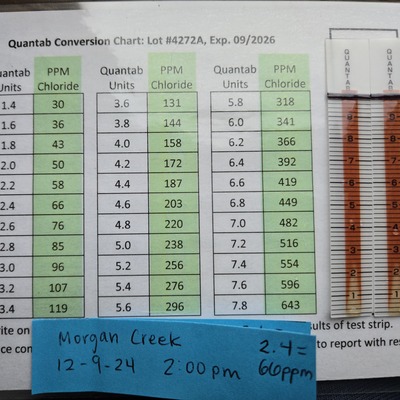 Quantab Conversion Chart: Lot #4272A, Exp. 09/2026
uantab Units PPM Chloride Quantab Units PPM Chloride Quantab Units PPM Chloride
1.4 30 3.6 131 5.8 318
1.6 36 3.8 144 6.0 341
1.8 43 4.0 158 6.2 366
2.0 50 4.2 172 6.4 392
2.2 58 4.4 187 6.6 419
2.4 66 4.6 203 6.8 449
2.6 76 4.8 220 7.0 482
2.8 85 5.0 238 7.2 516
3.0 96 5.2 256 7.4 554
3.2 107 5.4 276 7.6 596
3.4 119 5.6 296 7.8 643
QUANTAB QUANTAB
9
8 8
7 7
6 6
5 5
4 4
3 3
2 2
1 1
rite on
ults of test strip.
ce con
to report with res
Morgan Creek 2.4=
12-9-24 2:00pm 66ppm